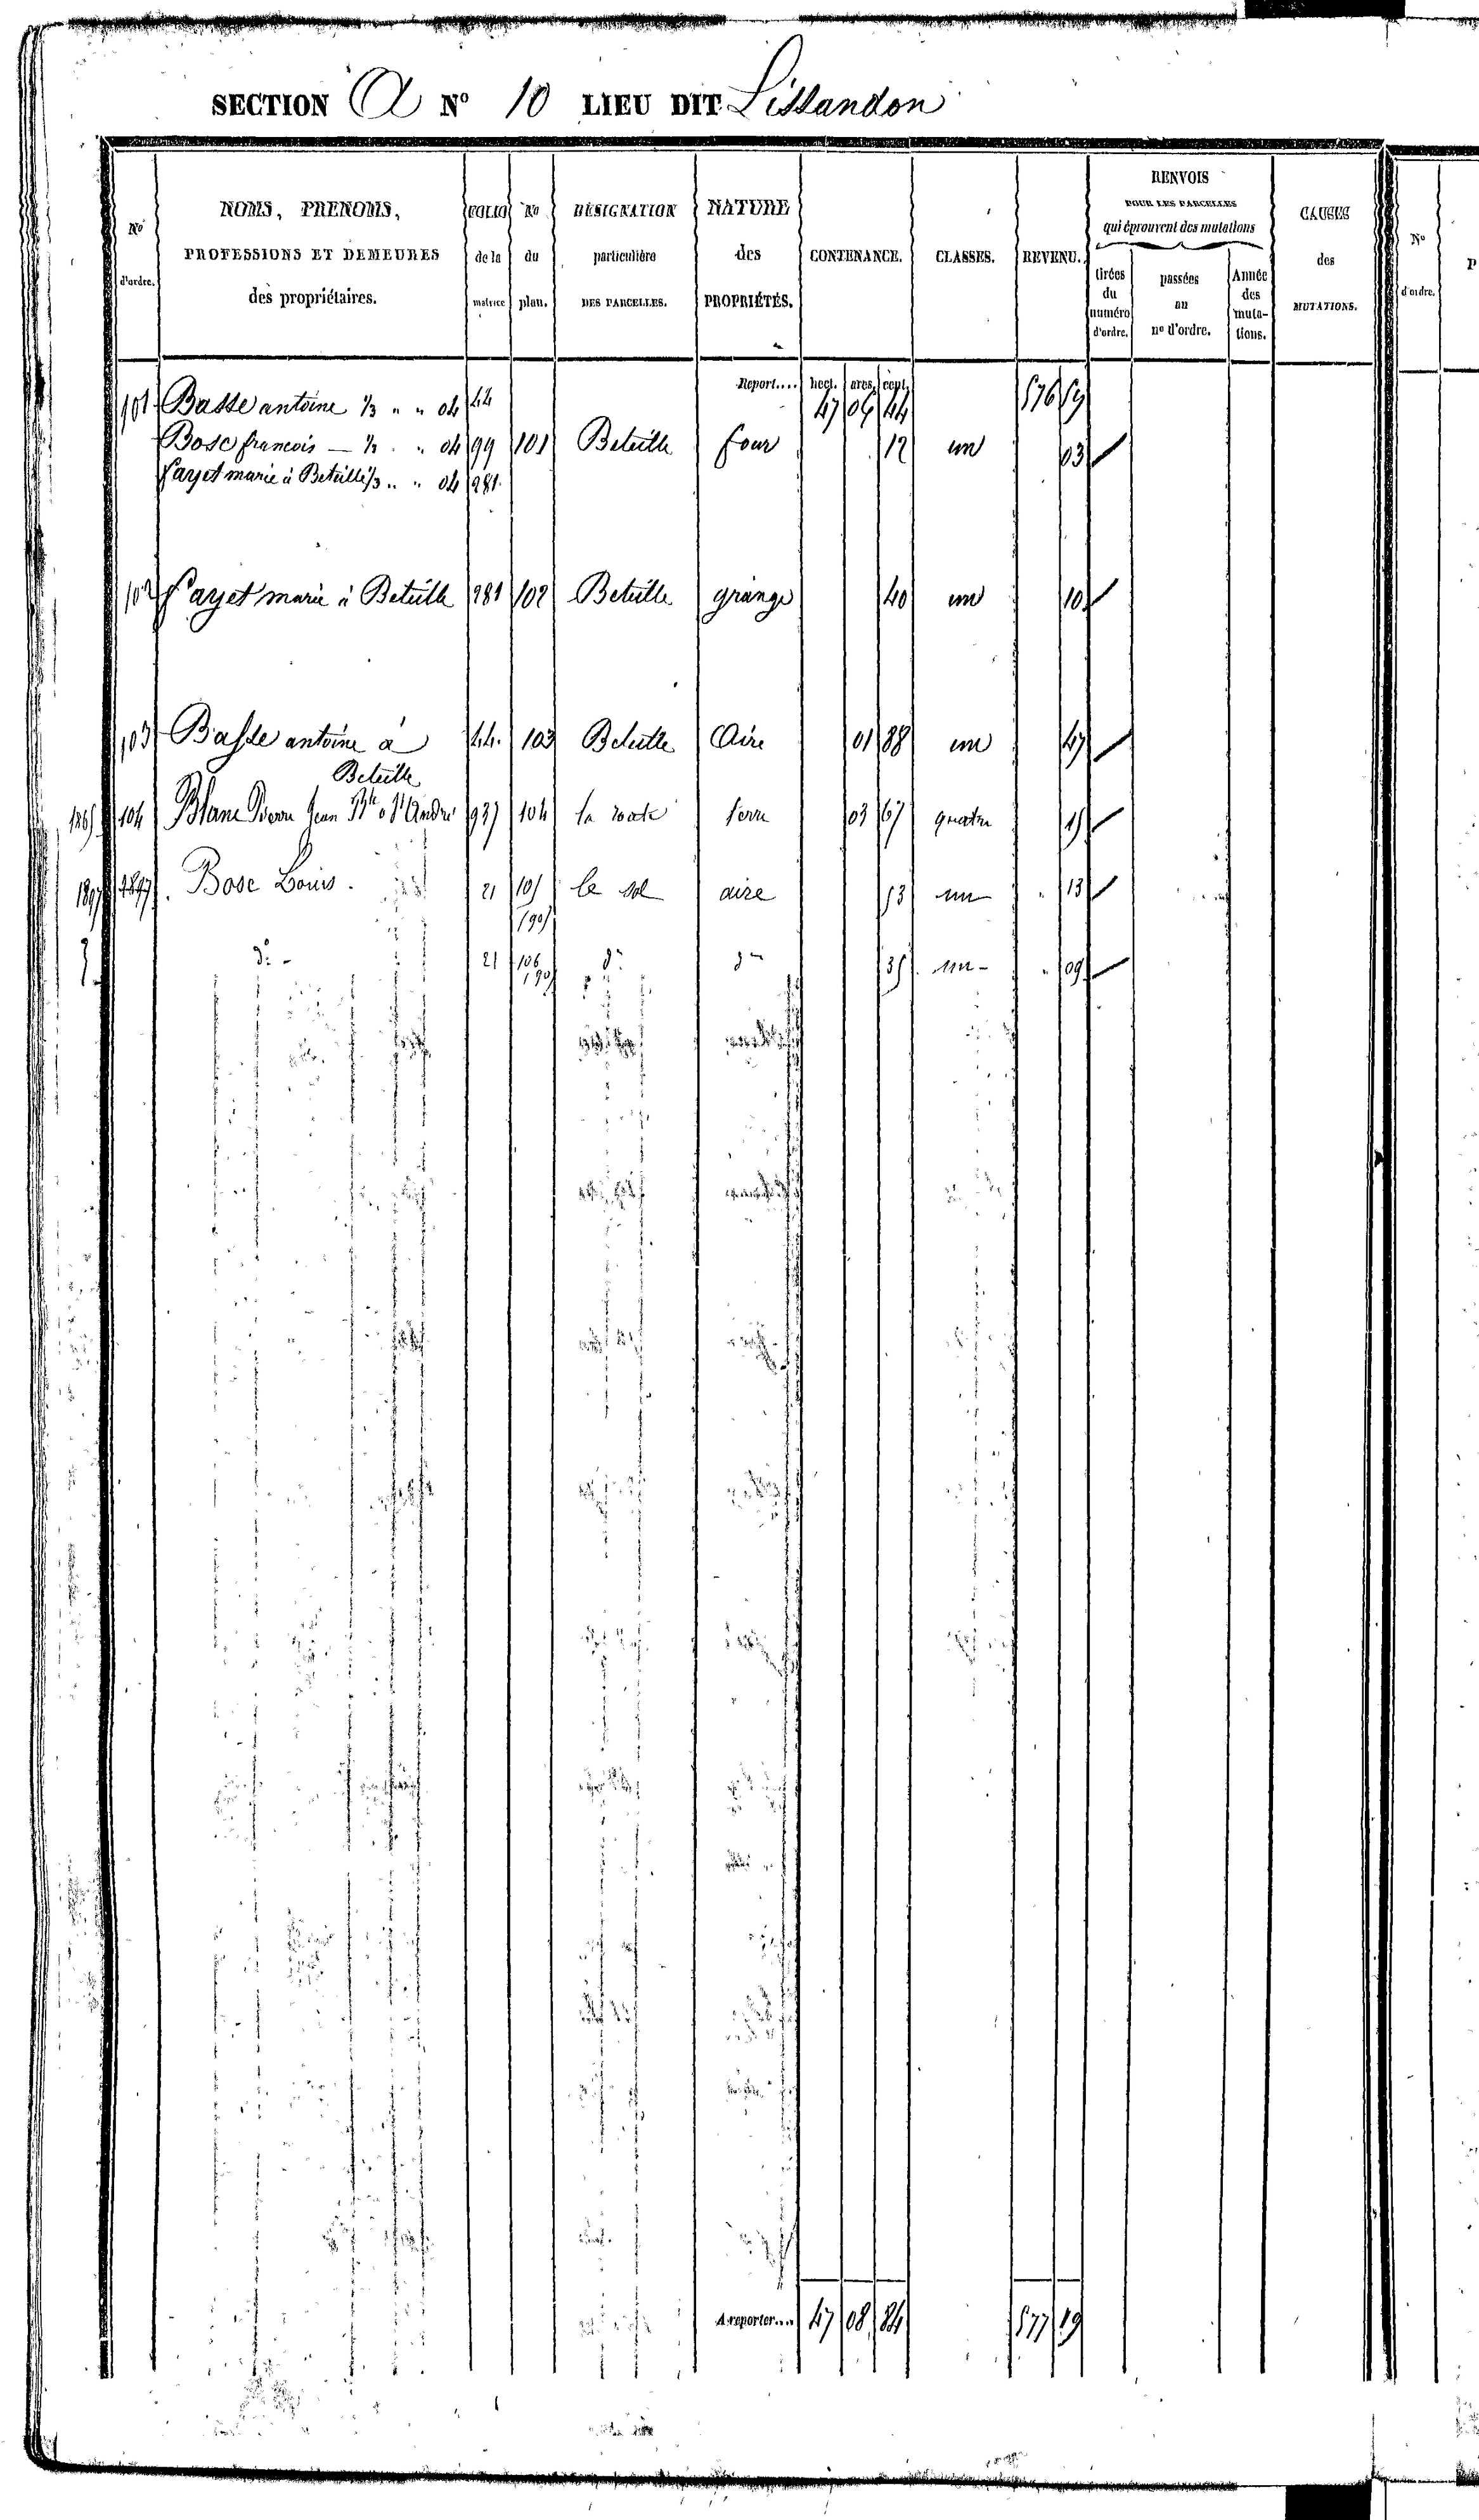 SECTION A N° 10 LIEU DIT Lissandon
N° d'ordre. NOMS, PRENOMS, PROFESSIONS ET DEMEURES des propriétaires. FOLIO de la matrice N° du plan. DÉSIGNATION particulière DES PARCELLES. NATURE des PROPRIÉTÉS. CONTENANCE. CLASSES. REVENU. RENVOIS POUR LES PARCELLES qui éprouvent des mutations tirées du numéro d'ordre. passées au n° d'ordre. Année des mutations. CAUSES des MUTATIONS. N° d'ordre.
Report.... hect. ares. cent.
47 04 44 576 59
101 Basse antoine 1/3 " " 04 44
Bosc francois — 1/3 " " 04 99 101 Beteille four 12 un 03
Fayet marie à Beteille 1/3 " " 04 281
102 Fayet marie à Beteille 281 102 Beteille grange 40 un 10
103 Basse antoine à Beteille 44. 103 Beteille Aire 01 88 un 47
104 Blanc Pierre Jean Bte à St André 937 104 la route terre 03 67 quatre 15
1897 Bosc Louis. 21 105 le sol aire 53 un " 13
do - 21 106 do do 35 un - " 09
A reporter.... 47 08 84 577 19